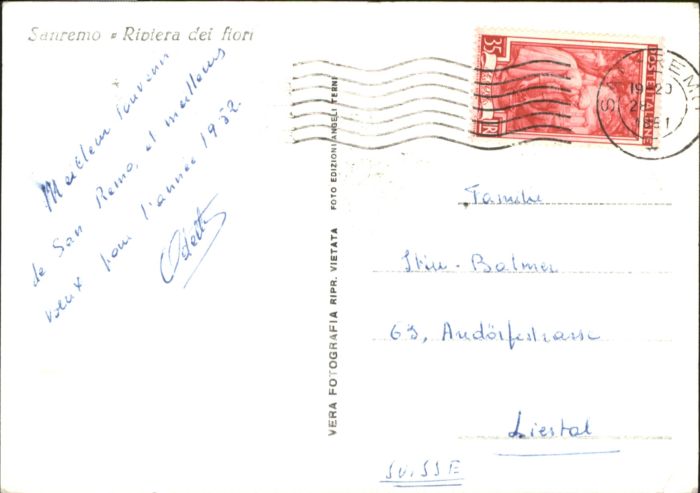 Sanremo - Riviera dei fiori
Meilleur souvenir
de San Remo, et meilleurs
vœux pour l'année 1952.
Odette
VERA FOTOGRAFIA RIPR. VIETATA
FOTO EDIZIONI ANGELI TERNI
35
POSTE ITALIANE
19-20
Familie
Stin-Balmer
63, Andörfstrasse
Liestal
SUISSE